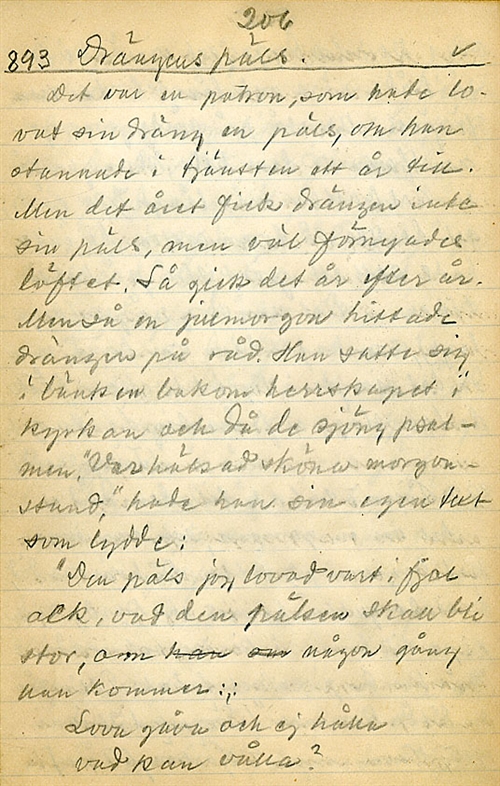 206
893 Drängens päls. ✓
Det var en patron, som hade lo-
vat sin dräng en päls, om han
stannade i tjänsten ett år till.
Men det året fick drängen inte
sin päls, men väl förnyades
löftet. Så gick det år efter år.
Men så en julmorgon hittade
drängen på råd. Han satte sig
i bänken bakom herrskapet i
kyrkan och då de sjöng psal-
men, "Var hälsad sköna morgon-
stund," hade han sin egen text
som lydde:
"Den päls jag lovad vart i fjol
ack, vad den pälsen skall bli
stor, om han som någon gång
han kommer :,:
Lova gåva och ej hålla
vad kan vålla?